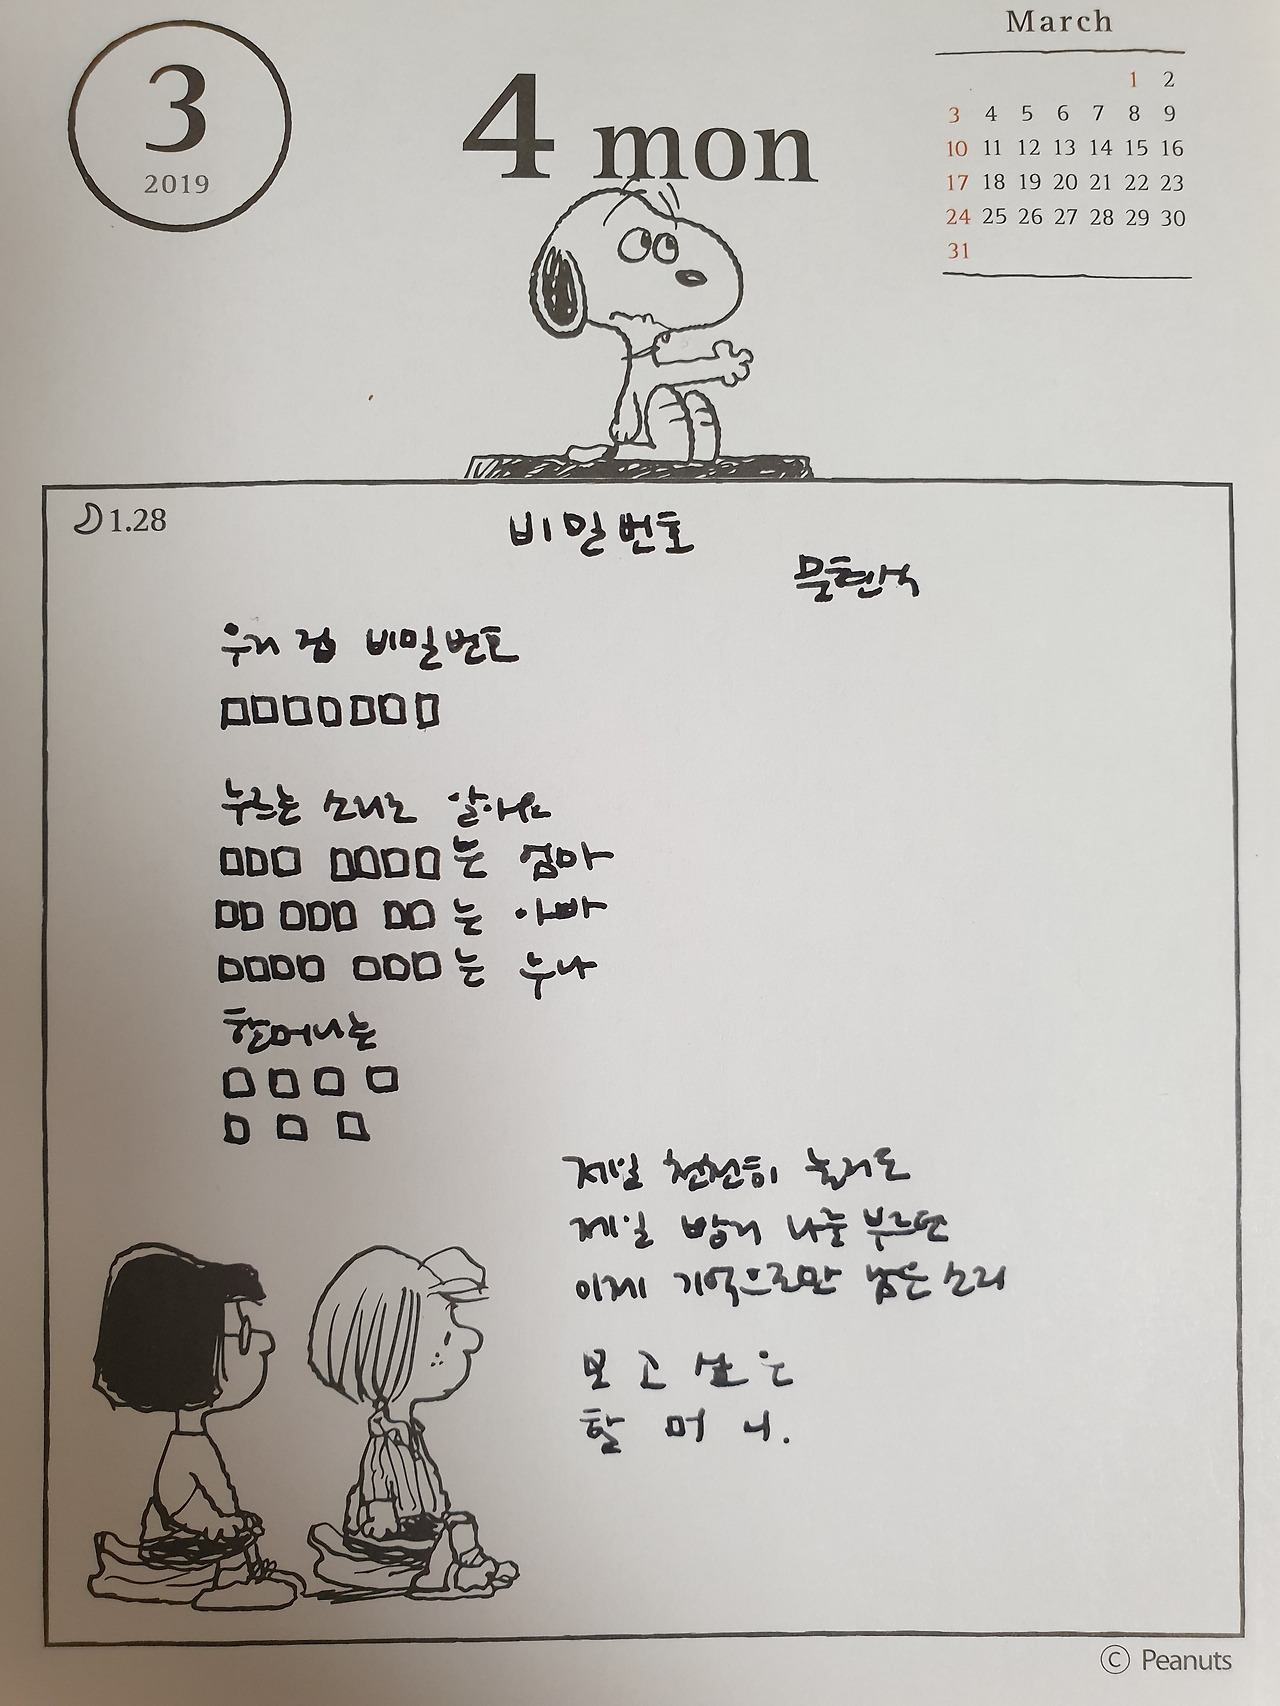 3
2019
4 mon
March
1 2
3 4 5 6 7 8 9
10 11 12 13 14 15 16
17 18 19 20 21 22 23
24 25 26 27 28 29 30
31
1.28
비밀번호
문현식
우리 집 비밀번호
□□□□□□□
누르는 소리로 알아요
□□□ □□□□는 엄마
□□ □□□ □□는 아빠
□□□□ □□□는 누나
할머니는
□ □ □ □
□ □ □
제일 천천히 눌러도
제일 빨리 나를 부르던
이제 기억으로만 남은 소리
보 고 싶 은
할 머 니.
© Peanuts